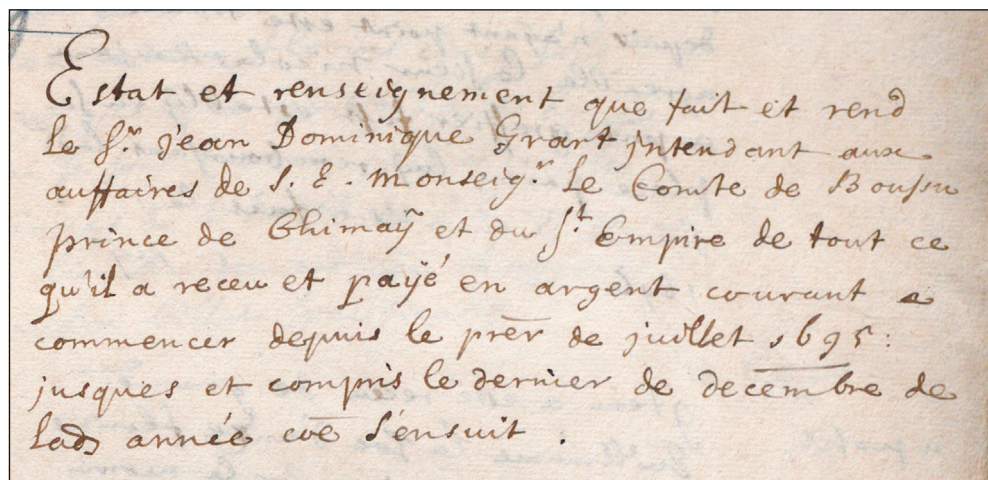 Estat et renseignement que fait et rend
le Sr. jean Dominique Grart jntendant aux
auffaires de S. E. Monseigr. Le Comte de Boussu
prince de Chimaÿ et du St. Empire de tout ce
qu'il a receu et payé en argent courant a
commencer depuis le prēr de juillet 1695:
jusques et compris le dernier de decembre de
lad. année coē s'ensuit.